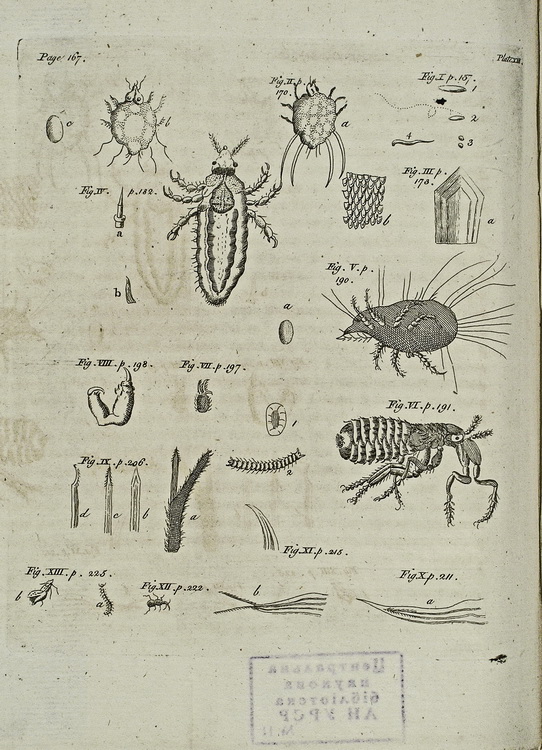 Page 167.
Plate XII
Fig. II. p.
170.
Fig. I. p. 157.
1
2
3
4
c
b
a
Fig. III. p.
178.
b
a
Fig. IV. p. 182.
a
b
a
Fig. V. p.
190.
Fig. VIII. p. 198.
Fig. VII. p. 197.
1
Fig. VI. p. 191.
Fig. IX. p. 206.
d
c
b
a
2
Fig. XI. p. 215.
Fig. XIII. p. 225.
b
a
Fig. XII. p. 222.
b
Fig. X. p. 211.
a
Центральна
наукова
бібліотека
АН УРСР